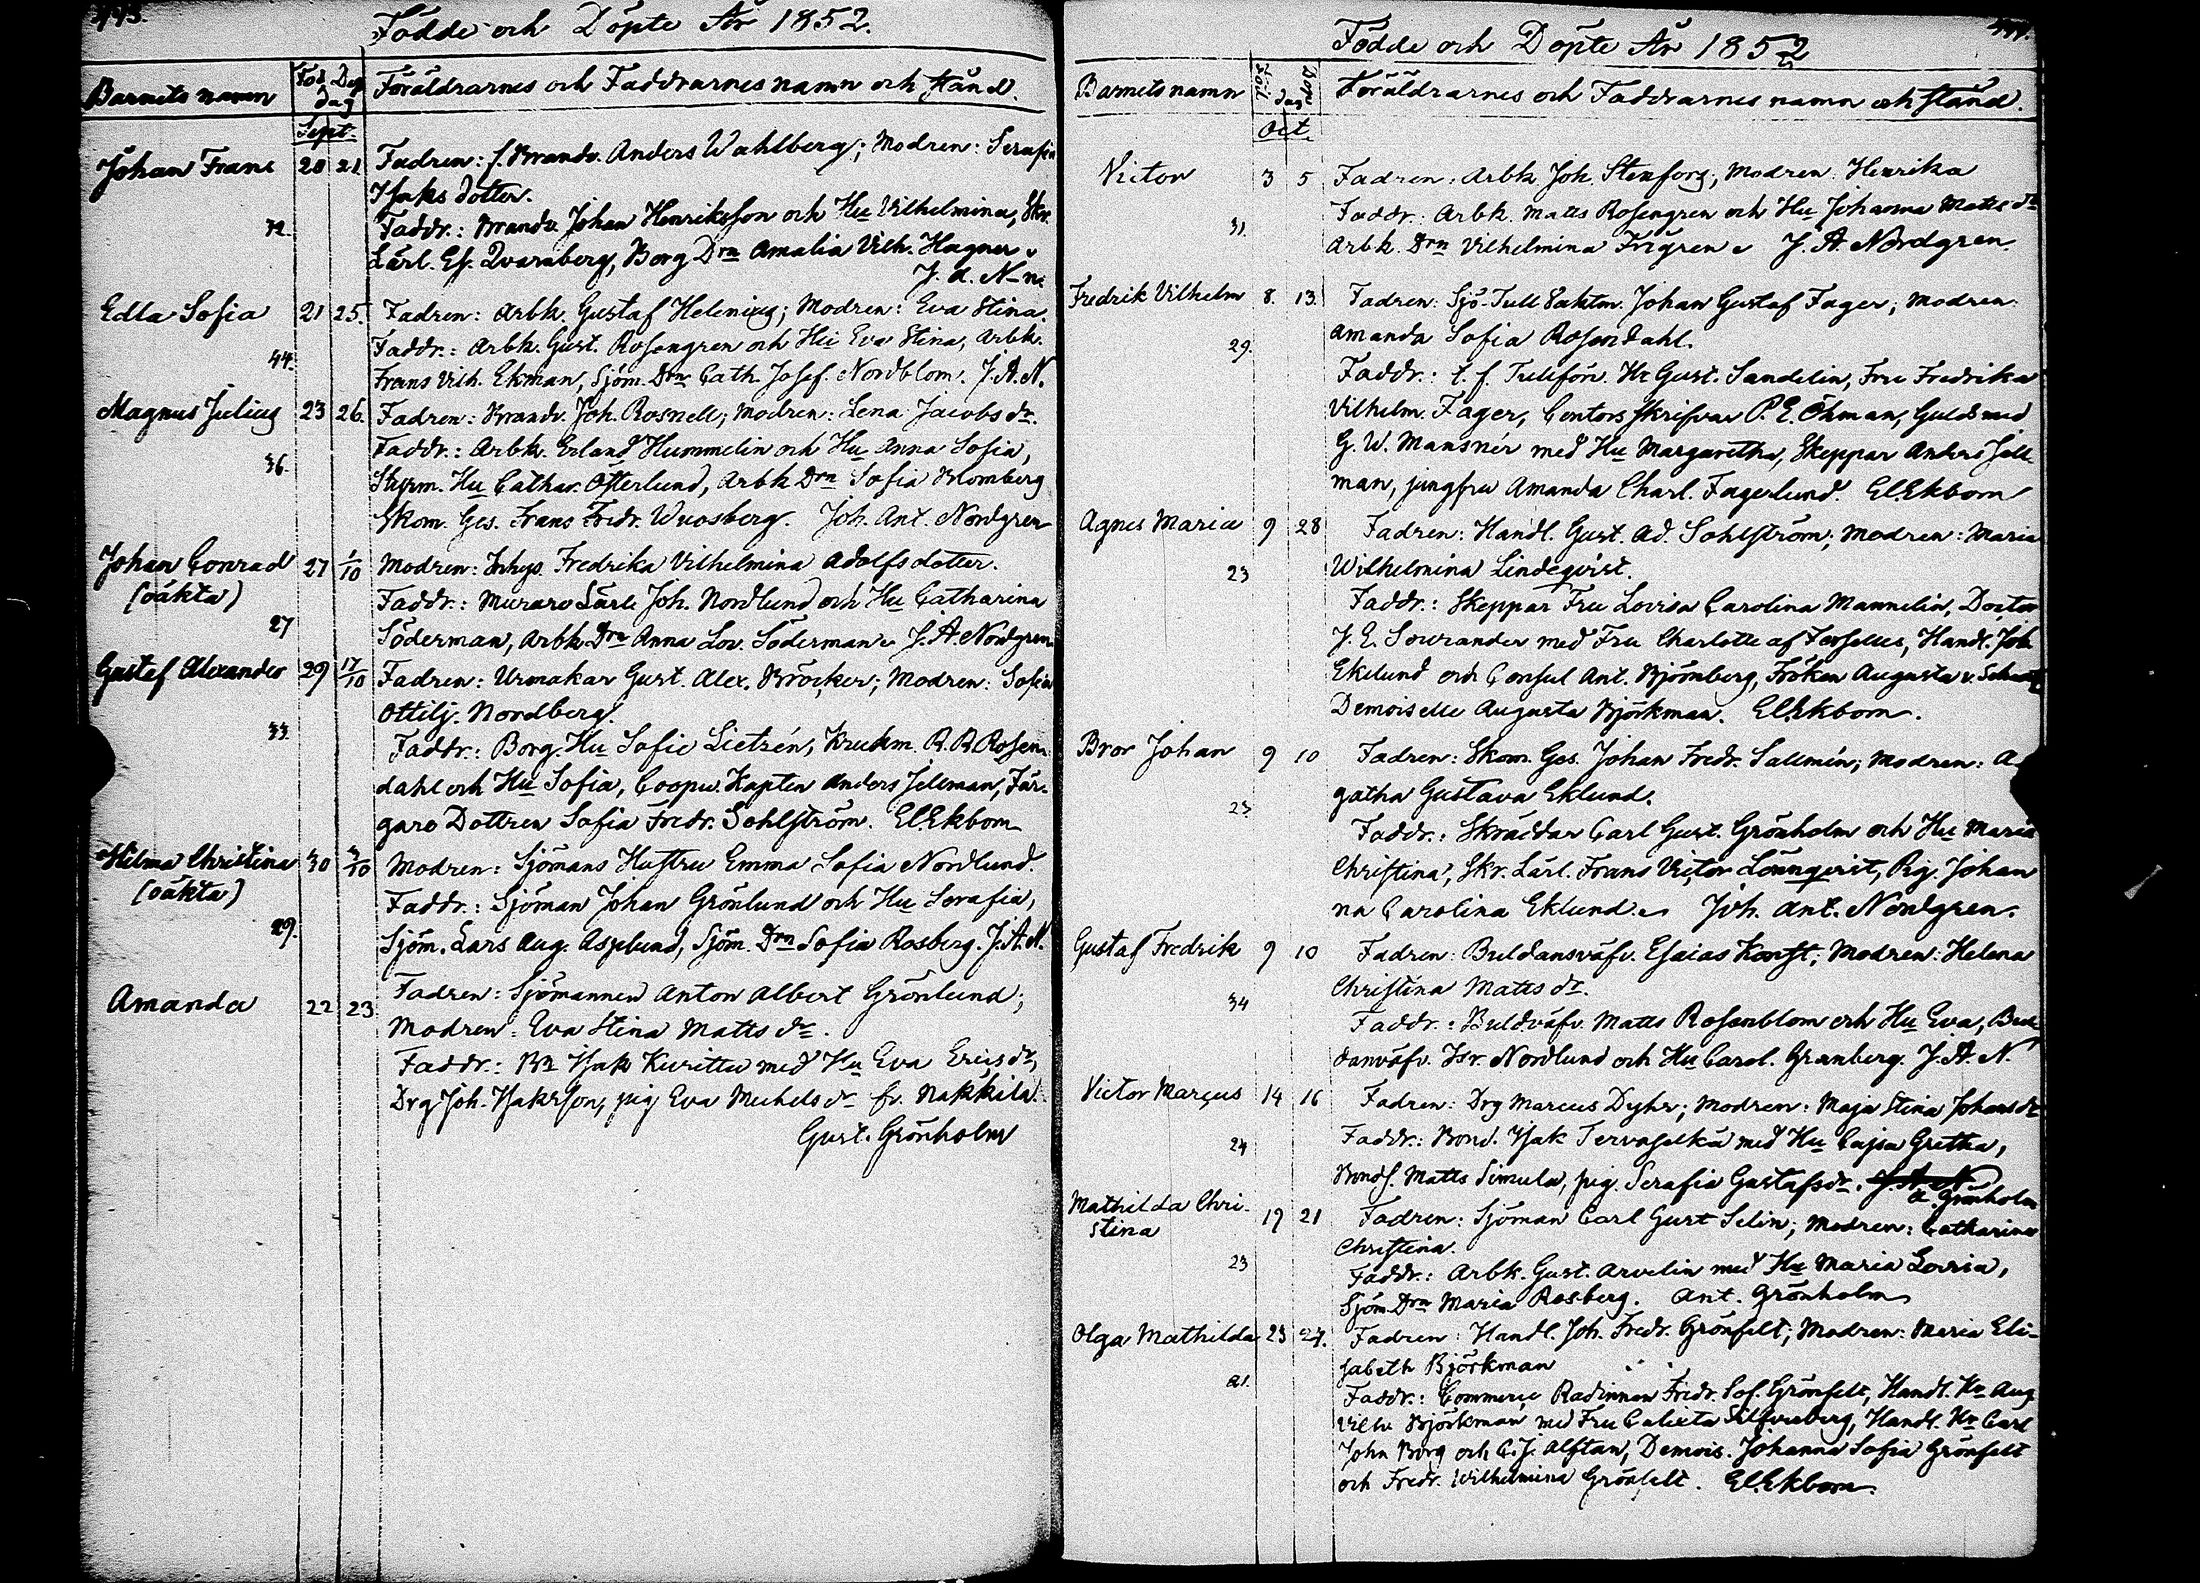 Födde och Döpte År 1852.
Barnets namn Föd. Döp. dag Föräldrarnes och Faddrarnes namn och stånd.
Sept.
Johan Frans 20 21 Fadren: f. Brandv. Anders Wahlberg; Modren: Serafia
Isaks dotter.
32. Faddr.: Brandv. Johan Henriksson och Hu Vilhelmina, Skr.
Lärl. Es. Qvarnberg, Borg Drn Amalia Vilh. Hagner
J. A. N-n
Edla Sofia 21 25. Fadren: Arbk. Gustaf Helenius; Modren: Eva Stina.
Faddr.: Arbk. Gust. Rosengren och Hu Eva Stina, Arbk.
44. Frans Vilh. Ekman, Sjöm. Drn Cath. Josef. Nordblom. J. A. N.
Magnus Julius 23 26. Fadren: Brandv. Joh. Rosnell; Modren: Lena Jacobs dr.
Faddr.: Arbk. Erland Hummelin och Hu Anna Sofia,
36. Styrm. Hu Cathar. Österlund, Arbk Drn Sofia Blomberg
Skom. Ges. Frans Fredr. Wuosberg. Joh. Ant. Nordgren
Johan Conrad 27 1/10 Modren: Inhys. Fredrika Vilhelmina Adolfsdotter.
(oäkta) Faddr.: Murare Lärl. Joh. Nordlund och Hu Catharina
27 Söderman, Arbk. Drn Anna Lov. Söderman J. A. Nordgren
Gustef Alexander 29 17/10 Fadren: Urmakar Gust. Alex. Bröcker; Modren: Sofia
Ottilj. Nordberg.
33. Faddr.: Borg. Hu Sofie Lietzén, Krukm. R. R. Rosen-
dahl och Hu Sofia, Coopv. Kapten Anders Jellman, Fär-
gare Dottren Sofia Fredr. Sohlström. El. Ekbom
Hilma Christina 30 3/10 Modren: Sjömans Hustru Emma Sofia Nordlund.
(oäkta) Faddr.: Sjöman Johan Grönlund och Hu Serafia,
29. Sjöm. Lars Aug. Asplund, Sjöm. Drn Sofia Rosberg. J. A. N.
Amanda 22 23 Fadren: Sjömannen Anton Albert Grönlund;
Modren: Eva Stina Matts dr.
Faddr.: Bn Isak Kurittu med Hu Eva Ericsdr,
Drg Joh. Isaksson, pig Eva Michelsdr fr. Nakkila.
Gust. Grönholm
Födde och Döpte År 1852
Barnets namn Föd. Döpt. dag Föräldrarnes och Faddrarnes namn och stånd.
Oct.
Victor 3 5 Fadren: Arbk Joh. Stenforg; Modren: Henrika
Faddr.: Arbk. Matts Rosengren och Hu Johanna Matts dr
31. Arbk. Drn Vilhelmina Frigren J. A. Nordgren
Fredrik Vilhelm 8. 13. Fadren: Sjö Tull Vaktm. Johan Gustaf Fager; Modren:
29. Amanda Sofia Rosendahl.
Faddr.: t. f. Tullförv. Hr Gust. Sandelin, Fru Fredrika
Vilhelm. Fager, Contors Skrifvar P. E. Öhman, Guldsmed
G. W. Mansnér med Hu Margaretha, Skeppar Anders Jell-
man, jungfru Amanda Charl. Fagerlund. El. Ekbom
Agnes Maria 9 28 Fadren: Handl. Gust. Ad. Sohlström; Modren: Maria
23 Wilhelmina Lindeqvist.
Faddr.: Skeppar Fru Lovisa Carolina Mannelin, Doctor
J. E. Sourander med Fru Charlotte af Forselles, Handl. Joh
Ekelund och Consul Ant. Björnberg, Fröken Augusta v.
Demoiselle Augusta Björkman. El. Ekbom.
Bror Johan 9 10 Fadren: Skom. Ges. Johan Fredr. Sallmén; Modren: A-
gatha Gustava Eklund.
23. Faddr.: Skräddar Carl Gust. Grönholm och Hu Maria
Christina, Skr. Lärl. Frans Victor Lönnqvist, Pig. Johan
na Carolina Eklund. Joh. Ant. Nordgren.
Gustaf Fredrik 9 10 Fadren: Buldansväfv. Esaias Konst; Modren: Helena
34 Christina Matts dr.
Faddr.: Buldväfv. Matts Rosenblom och Hu Eva, Bul-
danväfv. Isr. Nordlund och Hu Carol. Granberg. J. A. N.
Victor Marcus 14 16 Fadren: Drg Marcus Dyhr; Modren: Maja Stina Johansdr
24 Faddr.: Bond. Isak Tervaselkä med Hu Cajsa Gretha,
Bonds. Matts Simula, pig. Serafia Gustafsdr. J. A. N
A. Grönholm
Mathilda Chri- 19 21 Fadren: Sjöman Carl Gust Selin; Modren: Catharina
stina Christina.
23 Faddr.: Arbk. Gust. Arvelin med Hu Maria Lovisa,
Sjöm. Drn Maria Rosberg. Ant. Grönholm
Olga Mathilda 23 27. Fadren: Handl. Joh. Fredr. Grönfelt; Modren: Maria Eli-
sabeth Björkman
21. Faddr.: Commerce Rådinnan Fredr. Sof. Grönfelt, Handl. Hr Aug
Vilh. Björkman med Fru Calixta Silfverberg, Handl. Hr Carl
John Borg och C. J. Alftan, Demois. Johanna Sofia Grönfelt
och Fredr. Wilhelmina Grönfelt. El. Ekbom.